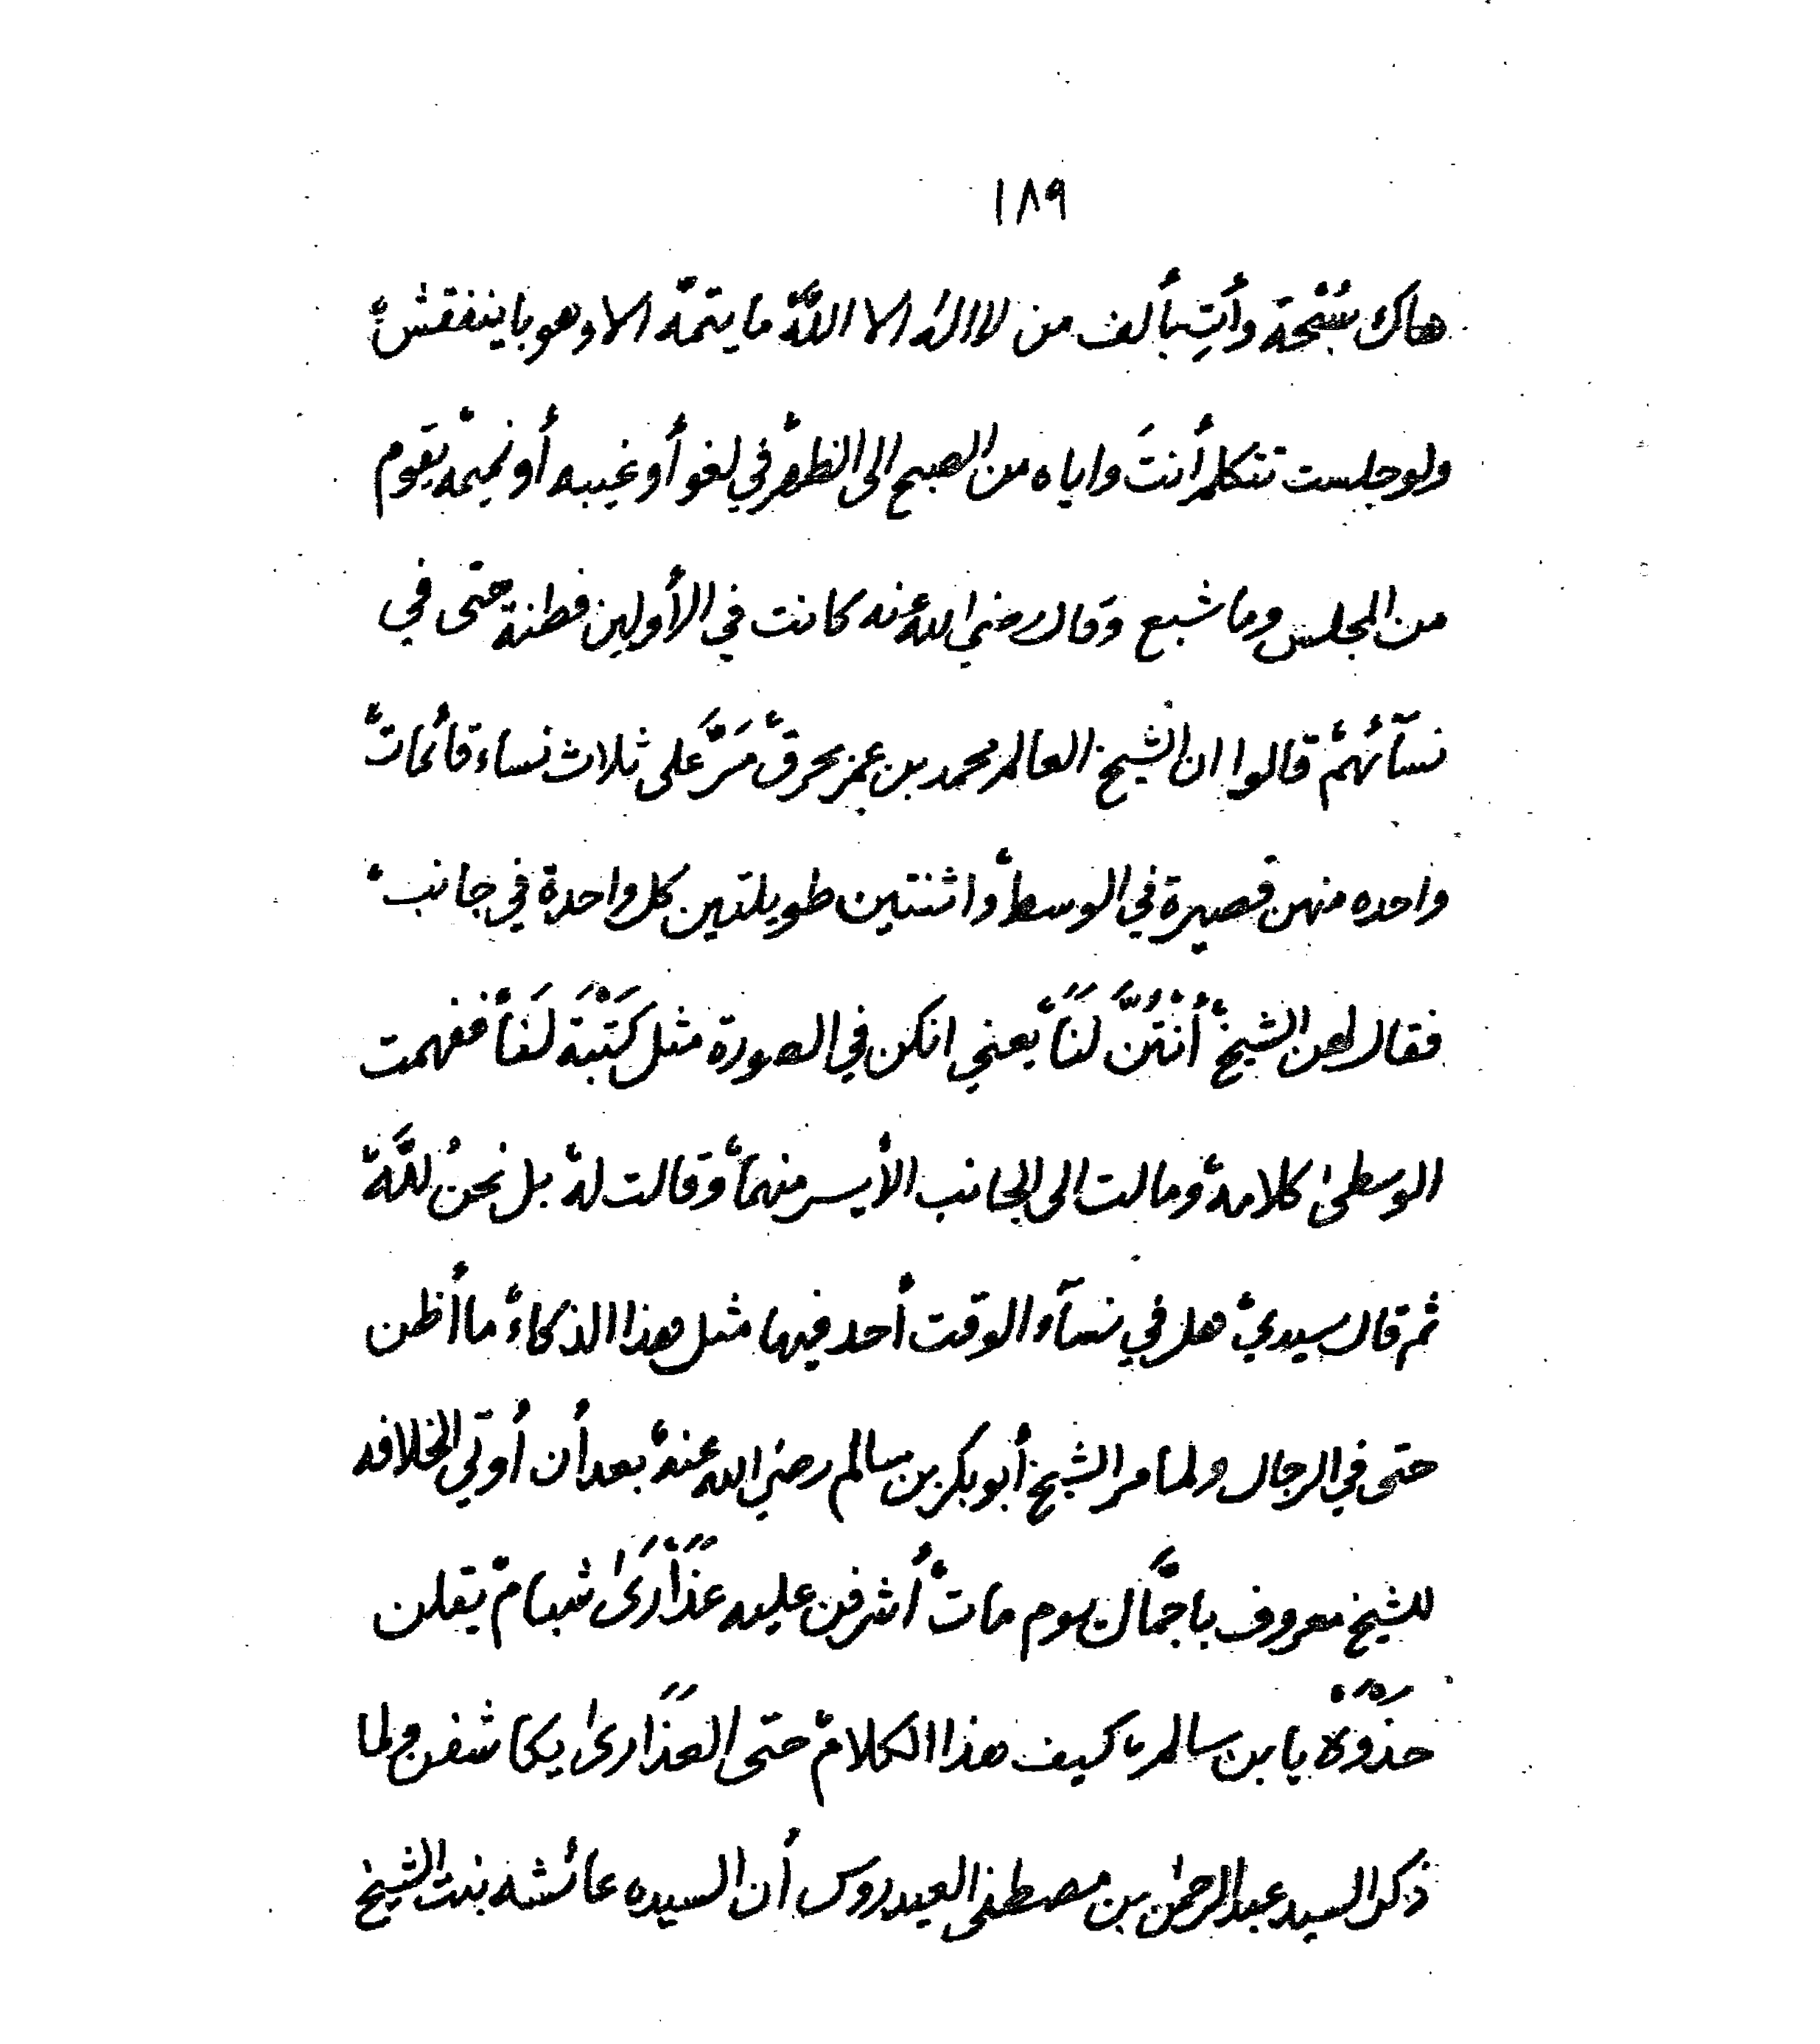 ١٨٩
هاك سُبْحة وأتِ بألف من لا اله الا اللَّه ما يتمه الا وهو با ينفقش
ولو جلست تتكلم أنتَ واياه من الصبح الى الظهر في لغو أو غيبه أو نميمه يقوم
من المجلس وما شبع وقال رضي الله عنه كانت في الأولين فطنة حتى في
نسآئهم قالوا ان الشيخ العالم محمد بن عمر بحرق مَرَّ على ثلاث نساء قائمات
واحده منهن قصيرة في الوسط واثنتين طويلتين كل واحدة في جانب
فقال لهن الشيخ أَنْتُنَّ لَنَا يعني انكن في الصورة مثل كَتْبَة لَنَا ففهمت
الوسطىٰ كلامه ومالت الى الجانب الأيسر منهما وقالت له بل نحنُ للَّه
ثم قال سيدي هل في نسآء الوقت أحد فيها مثل هذا الذكاء ما أظن
حتى في الرجال ولما مر الشيخ أبو بكر بن سالم رضي الله عنه بعد أن أوتي الخلافه
للشيخ معروف باجمَّال يوم مات أشرفن عليه عَذَارَىٰ شبام يقلن
حذوه يا بن سالم كيف هذا الكلام حتى العذارىٰ يكاشفن ولما
ذكر السيد عبد الرحمٰن بن مصطفى العيدروس أن السيده عائشه بنت الشيخ